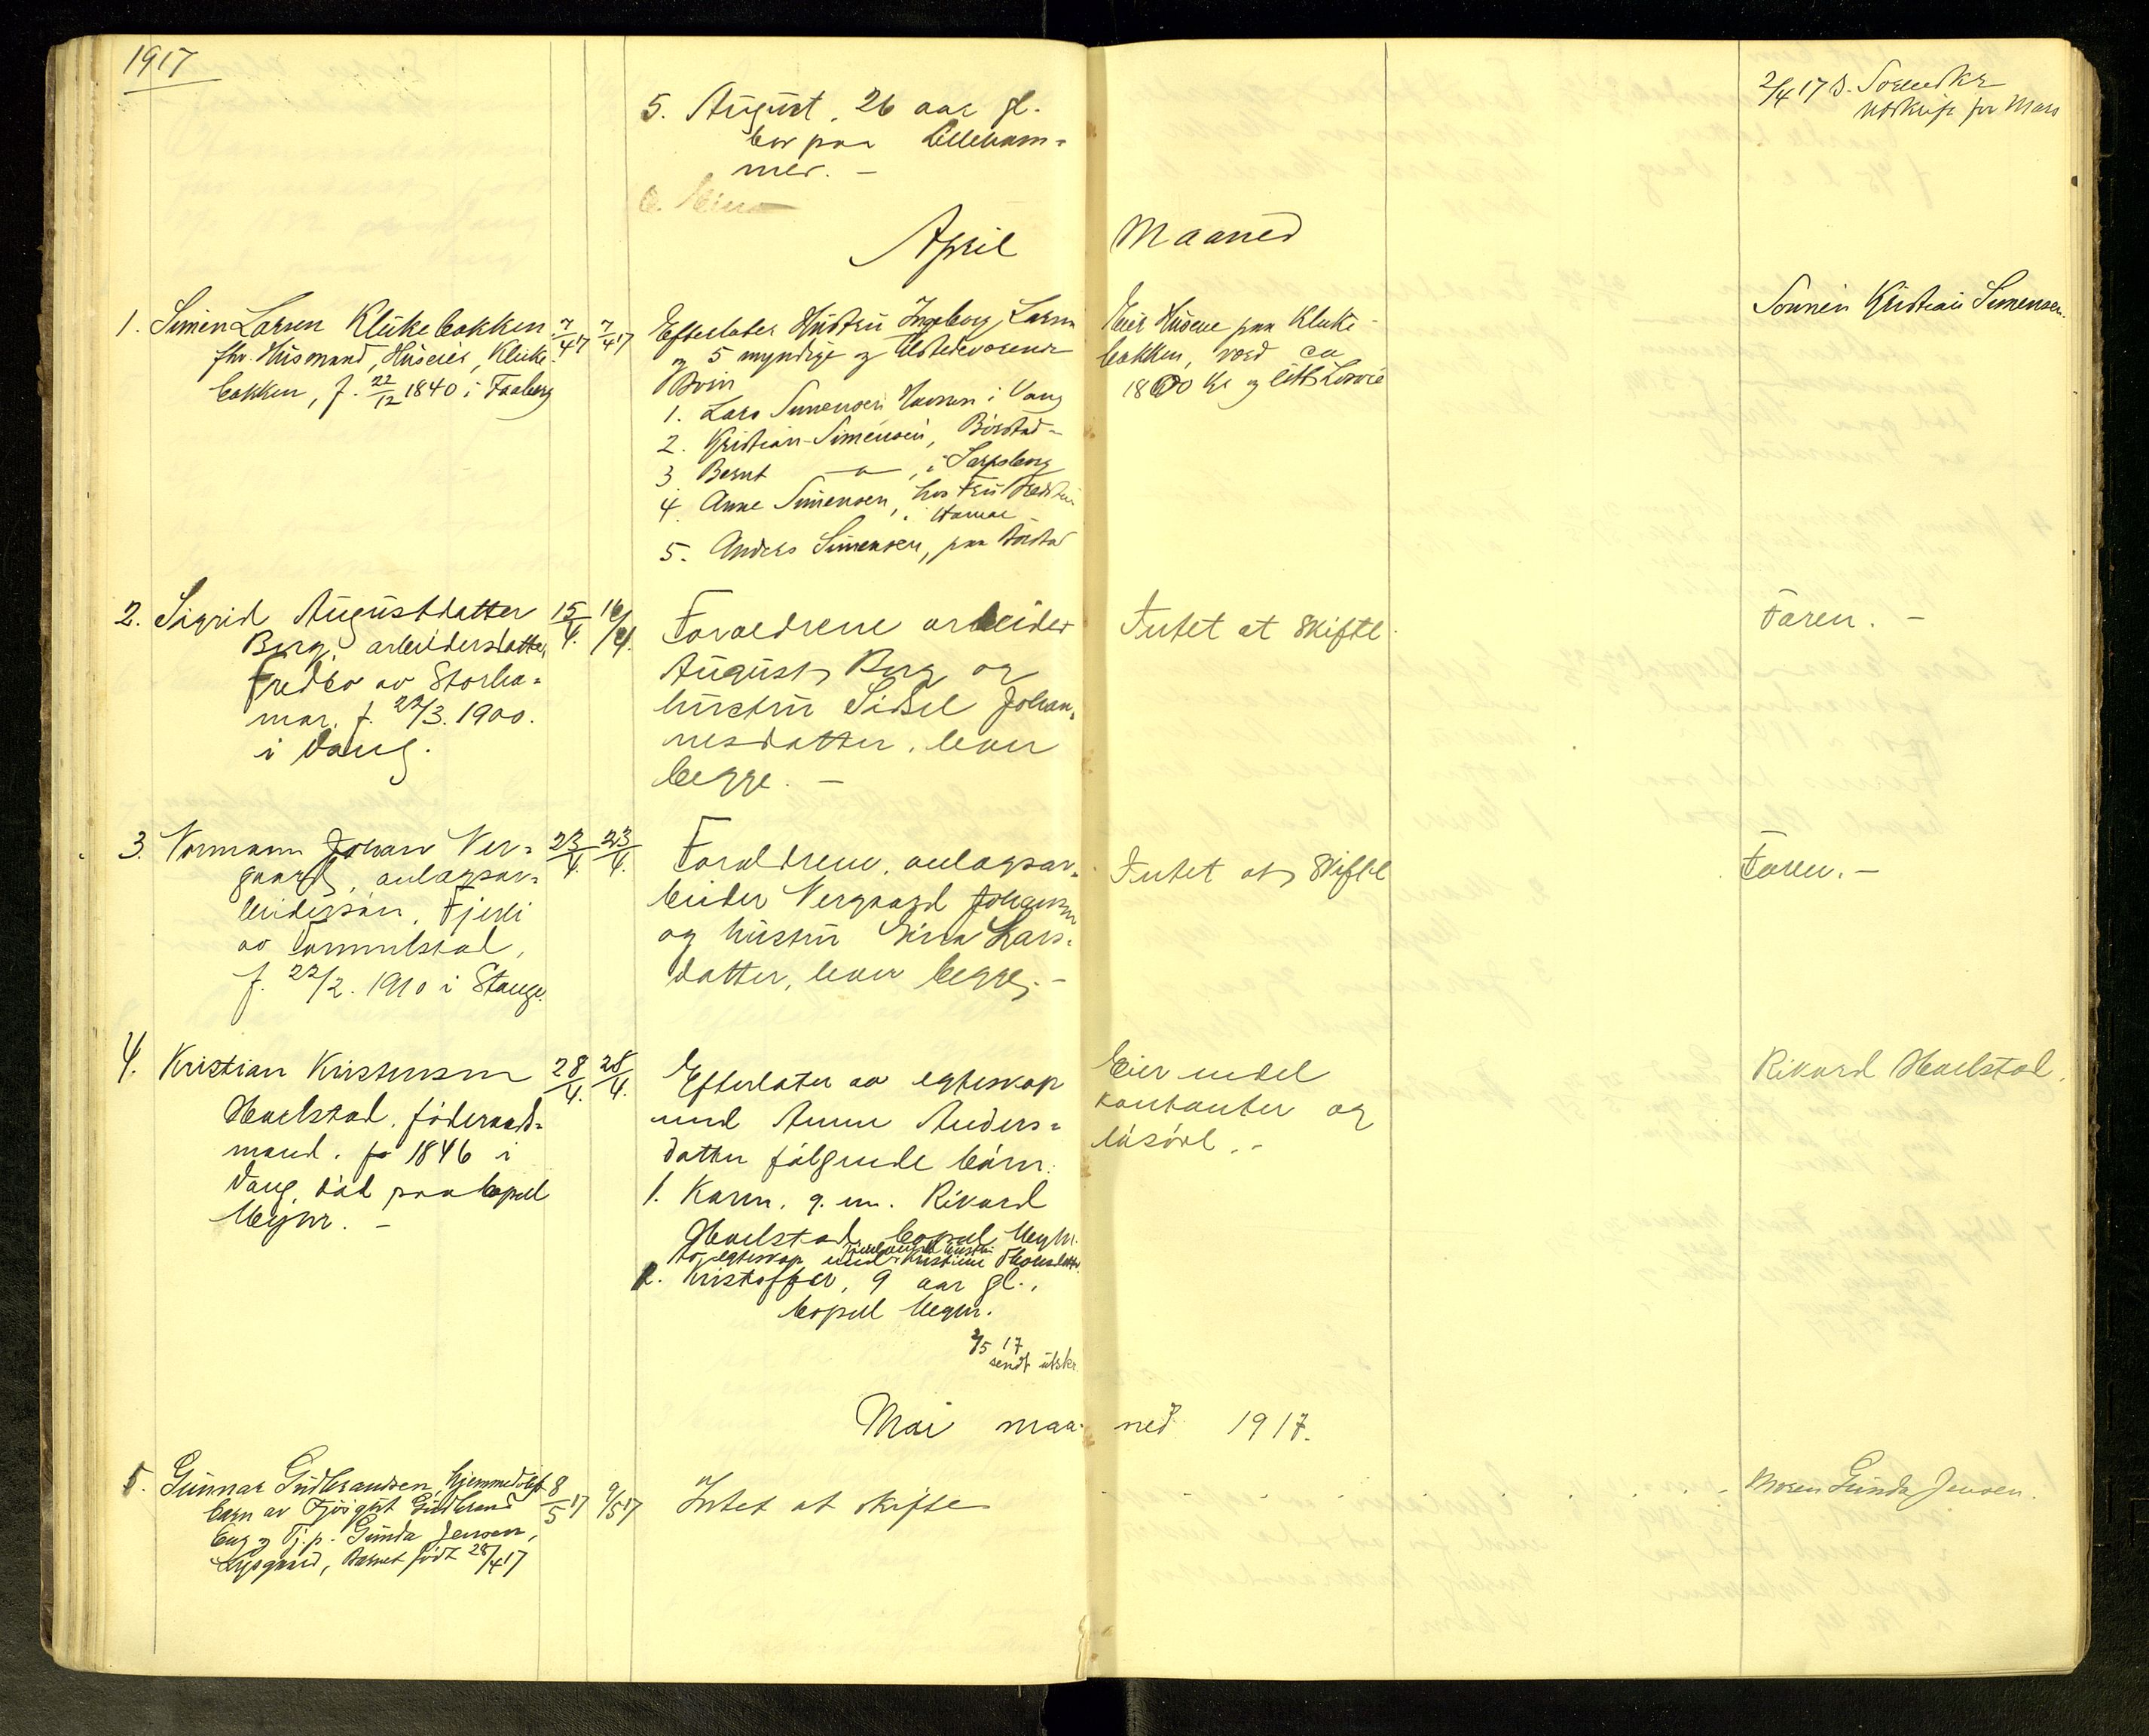 1917
5. August, 26 aar gl.
bor paa Lilleham=
mer. -
2/4 17 s. Sorenskr
utskrift for Mars
April Maaned
1. Simen Larsen Klukebakken
fhv. Husmand, Huseier, Kluke-
bakken, f. 22/12 1840 i Faaberg
7/4 17 7/4 17
Efterlater Hustru Ingeborg Larsen
og 5 myndige og tilstedeværende
Børn
1. Lars Simensen i Vang
2. Kristian Simensen, Børstad-
3 Bernt -"-, i Sarpsborg
4. Anne Simensen, hos Fru
i Hamar
5. Anders Simensen, paa Børstad
Eier Husene paa Kluke-
bakken, værd ca
1800 Kr og litt Løsøre
Sønnen Kristian Simensen.
2. Sigrid Augustdatter
Berg, arbeidersdatter,
Fredbo av Storha=
mar. f. 22/3. 1900.
i Vang.
15/4. 16/4.
Forældrene arbeider
August Berg og
hustru Sidsel Johan=
nesdatter, lever
begge. -
Intet at skifte.
Faren. -
3. Normann Johan Ver=
gaard, anlægsar=
beidersøn, Fjeldi
av
f. 22/2. 1910 i Stange.
23/4. 23/4.
Forældrene, anlægsar=
beider Vergaard Johansen
og hustru Lars=
datter, lever begge. -
Intet at skifte
Faren. -
4. Kristian Kristensen
Hoelstad, føderaads=
mand. fø 1846 i
Vang, død paa bopæl
28/4. 28/4.
Efterlater av egteskap
med Anne Anders=
datter følgende børn:
1. Karen, g. m. Rikard
Hoelstad, bopæl
Av egteskap med Kristine
2. Kristoffer, 9 aar gl.,
bopæl
2/5 17
sendt utskr.
Eier endel
kontanter og
løsøre. -
Rikard Hoelstad.
Mai maaned 1917.
5. Gunnar Gudbrandsen, hjemmedøpt
barn av Fjøsgut Gudbrand
og Tj.p. Gunda Jensen,
Barnet født 28/4 17
8/5 17 9/5 17
Intet at skifte
Moren Gunda Jensen.